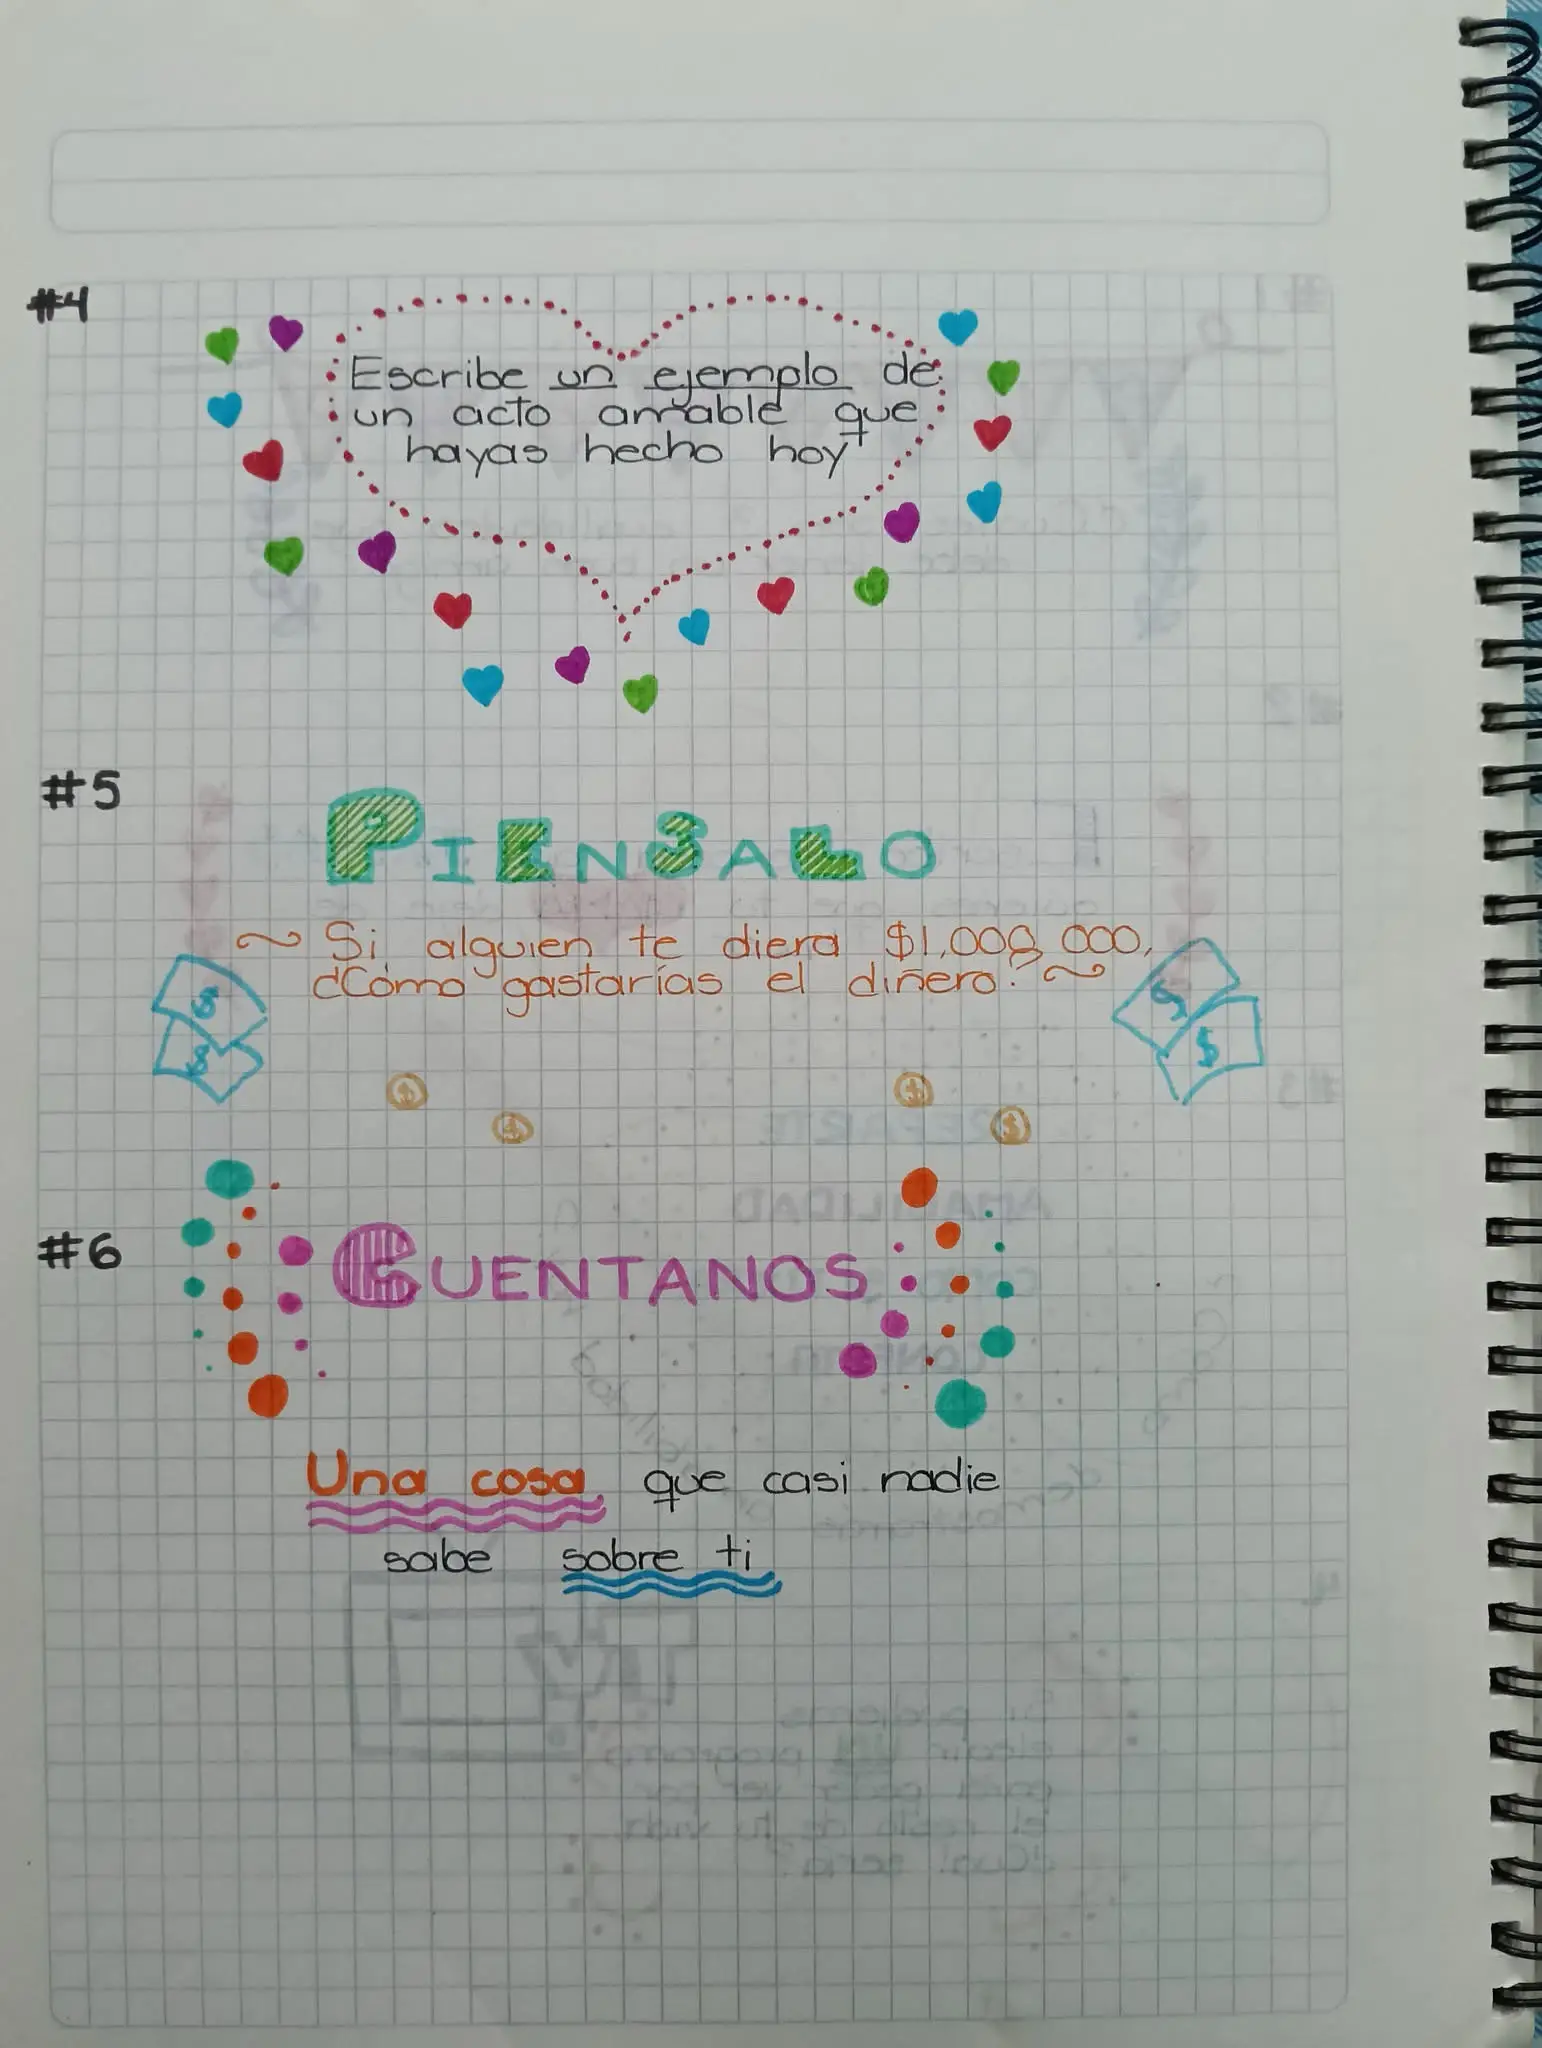 #4
Escribe un ejemplo de
un acto amable que
hayas hecho hoy
#5
PIENSALO
~ Si alguien te diera $1,000,000,
¿Cómo gastarías el dinero? ~
$
$
$
$
$
$
$
$
#6
CUENTANOS
Una cosa que casi nadie
sabe sobre ti